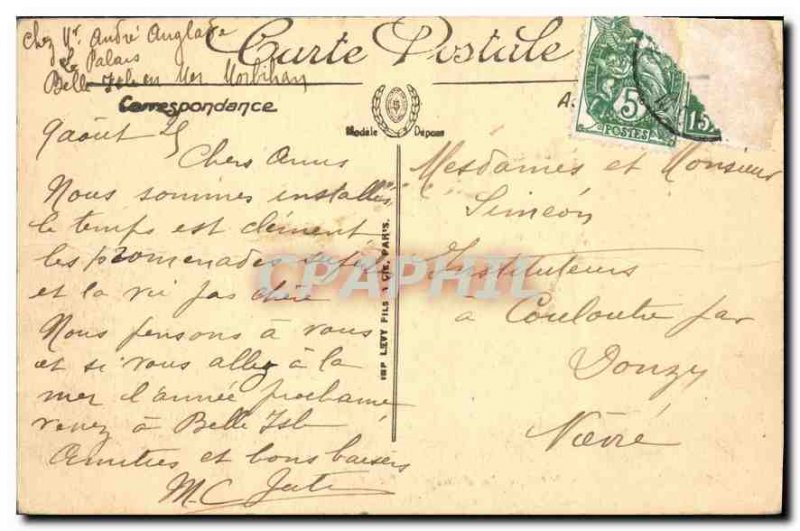 Chez Mr André Anglade
Le Palais
Belle Isle en Mer Morbihan
Carte Postale
Correspondance
A
Modèle Déposé
5
POSTES
15
9 aout
Chers Amis
Nous sommes installés,
le temps est clément
les promenades
et la vie pas chère
Nous pensons à vous
et si vous allez à la
mer l'année prochaine
venez à Belle Isle
Amitiés et bons baisers
M.C
IMP LEVY FILS & CIE, PARIS.
Mesdames et Monsieur
Siméon
Instituteurs
à Couloutre par
Donzy
Nièvre
CPAPHIL